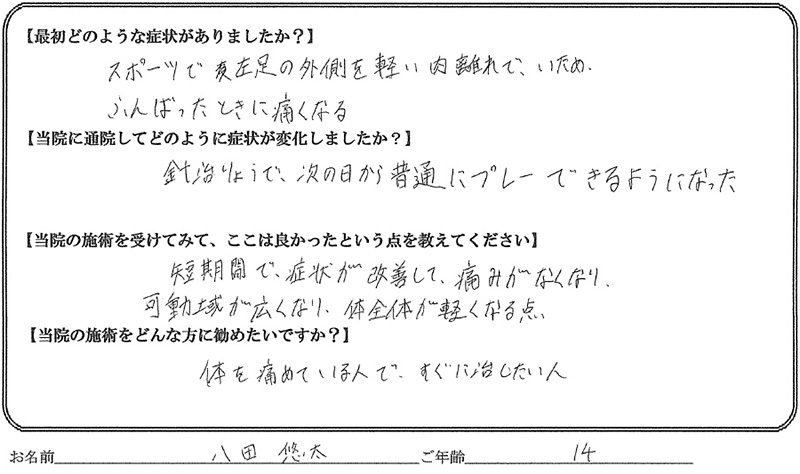 【最初どのような症状がありましたか？】
スポーツで左足の外側を軽い肉離れで、いため、
ふんばったときに痛くなる
【当院に通院してどのように症状が変化しましたか？】
針治りょうで、次の日から普通にプレーできるようになった
【当院の施術を受けてみて、ここは良かったという点を教えてください】
短期間で、症状が改善して、痛みがなくなり、
可動域が広くなり、体全体が軽くなる点、
【当院の施術をどんな方に勧めたいですか？】
体を痛めている人で、すぐに治したい人
お名前 八田 悠太 ご年齢 14